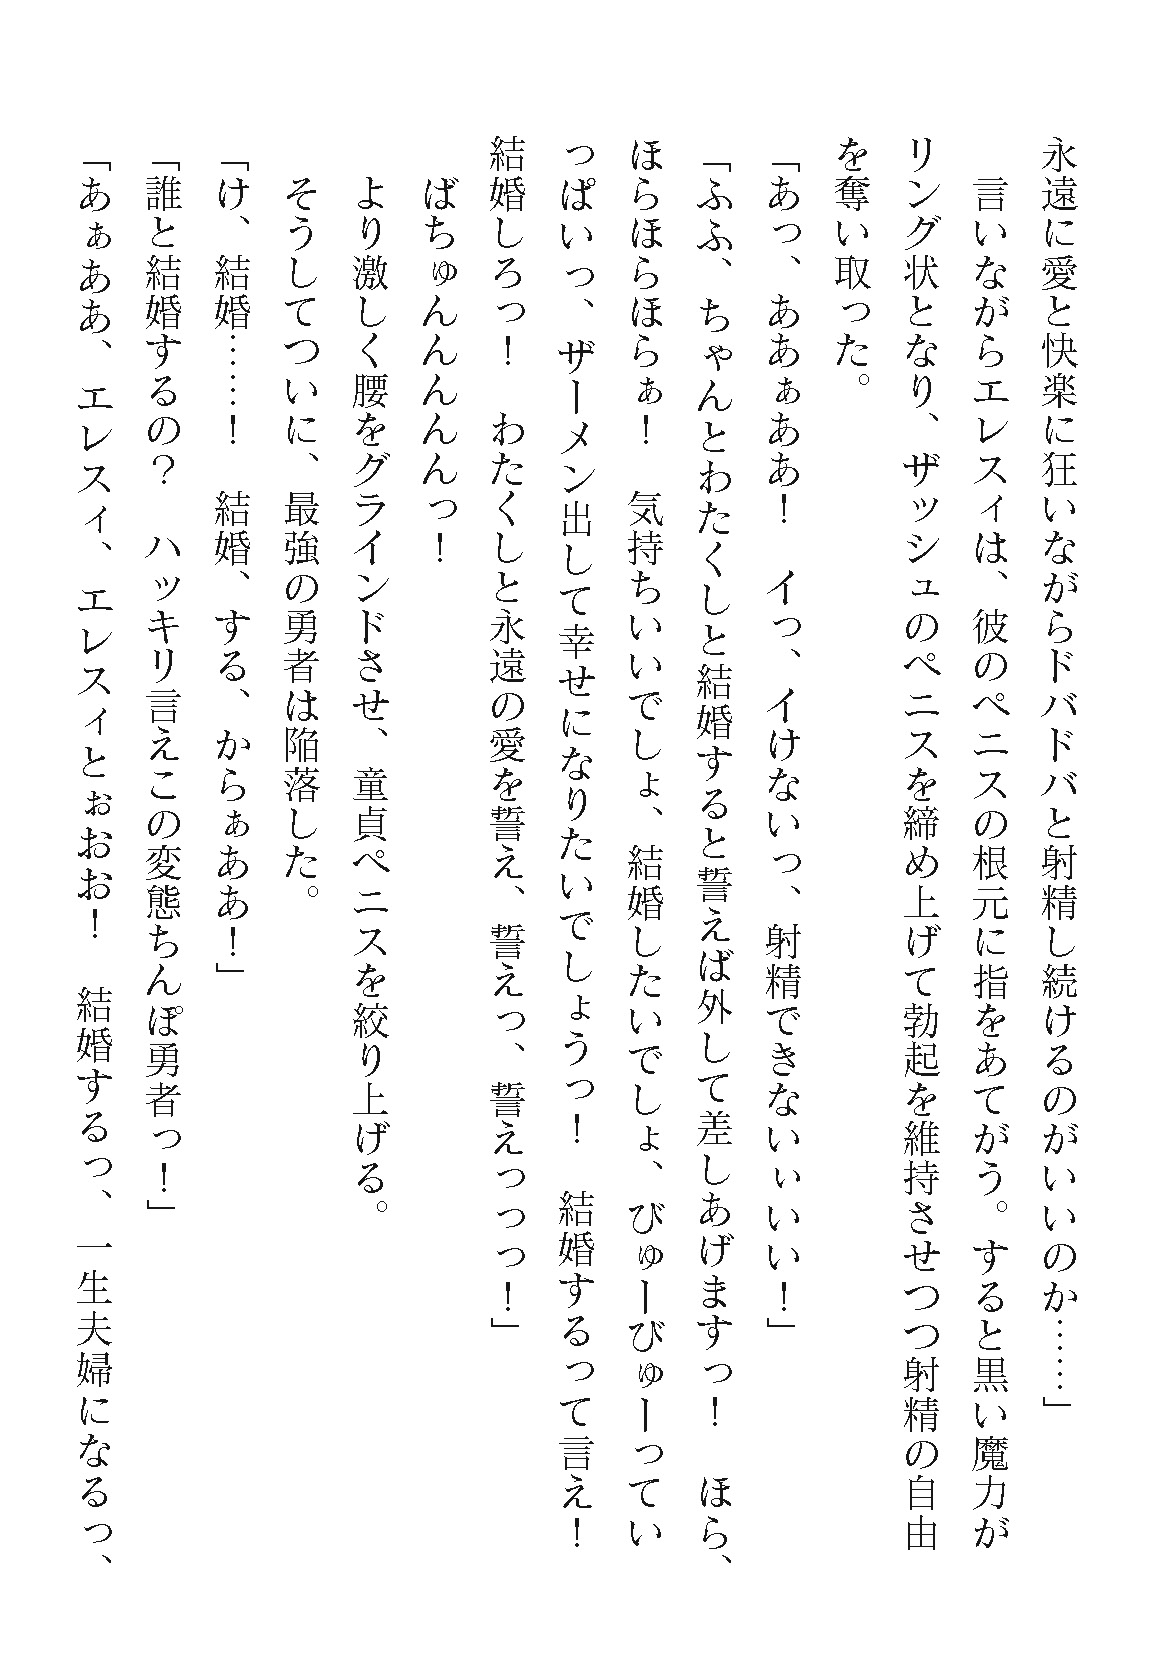 永遠に愛と快楽に狂いながらドバドバと射精し続けるのがいいのか……」
　言いながらエレスィは、彼のペニスの根元に指をあてがう。すると黒い魔力が
リング状となり、ザッシュのペニスを締め上げて勃起を維持させつつ射精の自由
を奪い取った。
「あっ、ああぁああ！　イっ、イけないっ、射精できないぃいい！」
「ふふ、ちゃんとわたくしと結婚すると誓えば外して差しあげますっ！　ほら、
ほらほらほらぁ！　気持ちいいでしょ、結婚したいでしょ、びゅーびゅーってい
っぱいっ、ザーメン出して幸せになりたいでしょうっ！　結婚するって言え！
結婚しろっ！　わたくしと永遠の愛を誓え、誓えっ、誓えっっっ！」
　ばちゅんんんんっ！
　より激しく腰をグラインドさせ、童貞ペニスを絞り上げる。
　そうしてついに、最強の勇者は陥落した。
「け、結婚……！　結婚、する、からぁああ！」
「誰と結婚するの？　ハッキリ言えこの変態ちんぽ勇者っ！」
「あぁああ、エレスィ、エレスィとぉおお！　結婚するっ、一生夫婦になるっ、